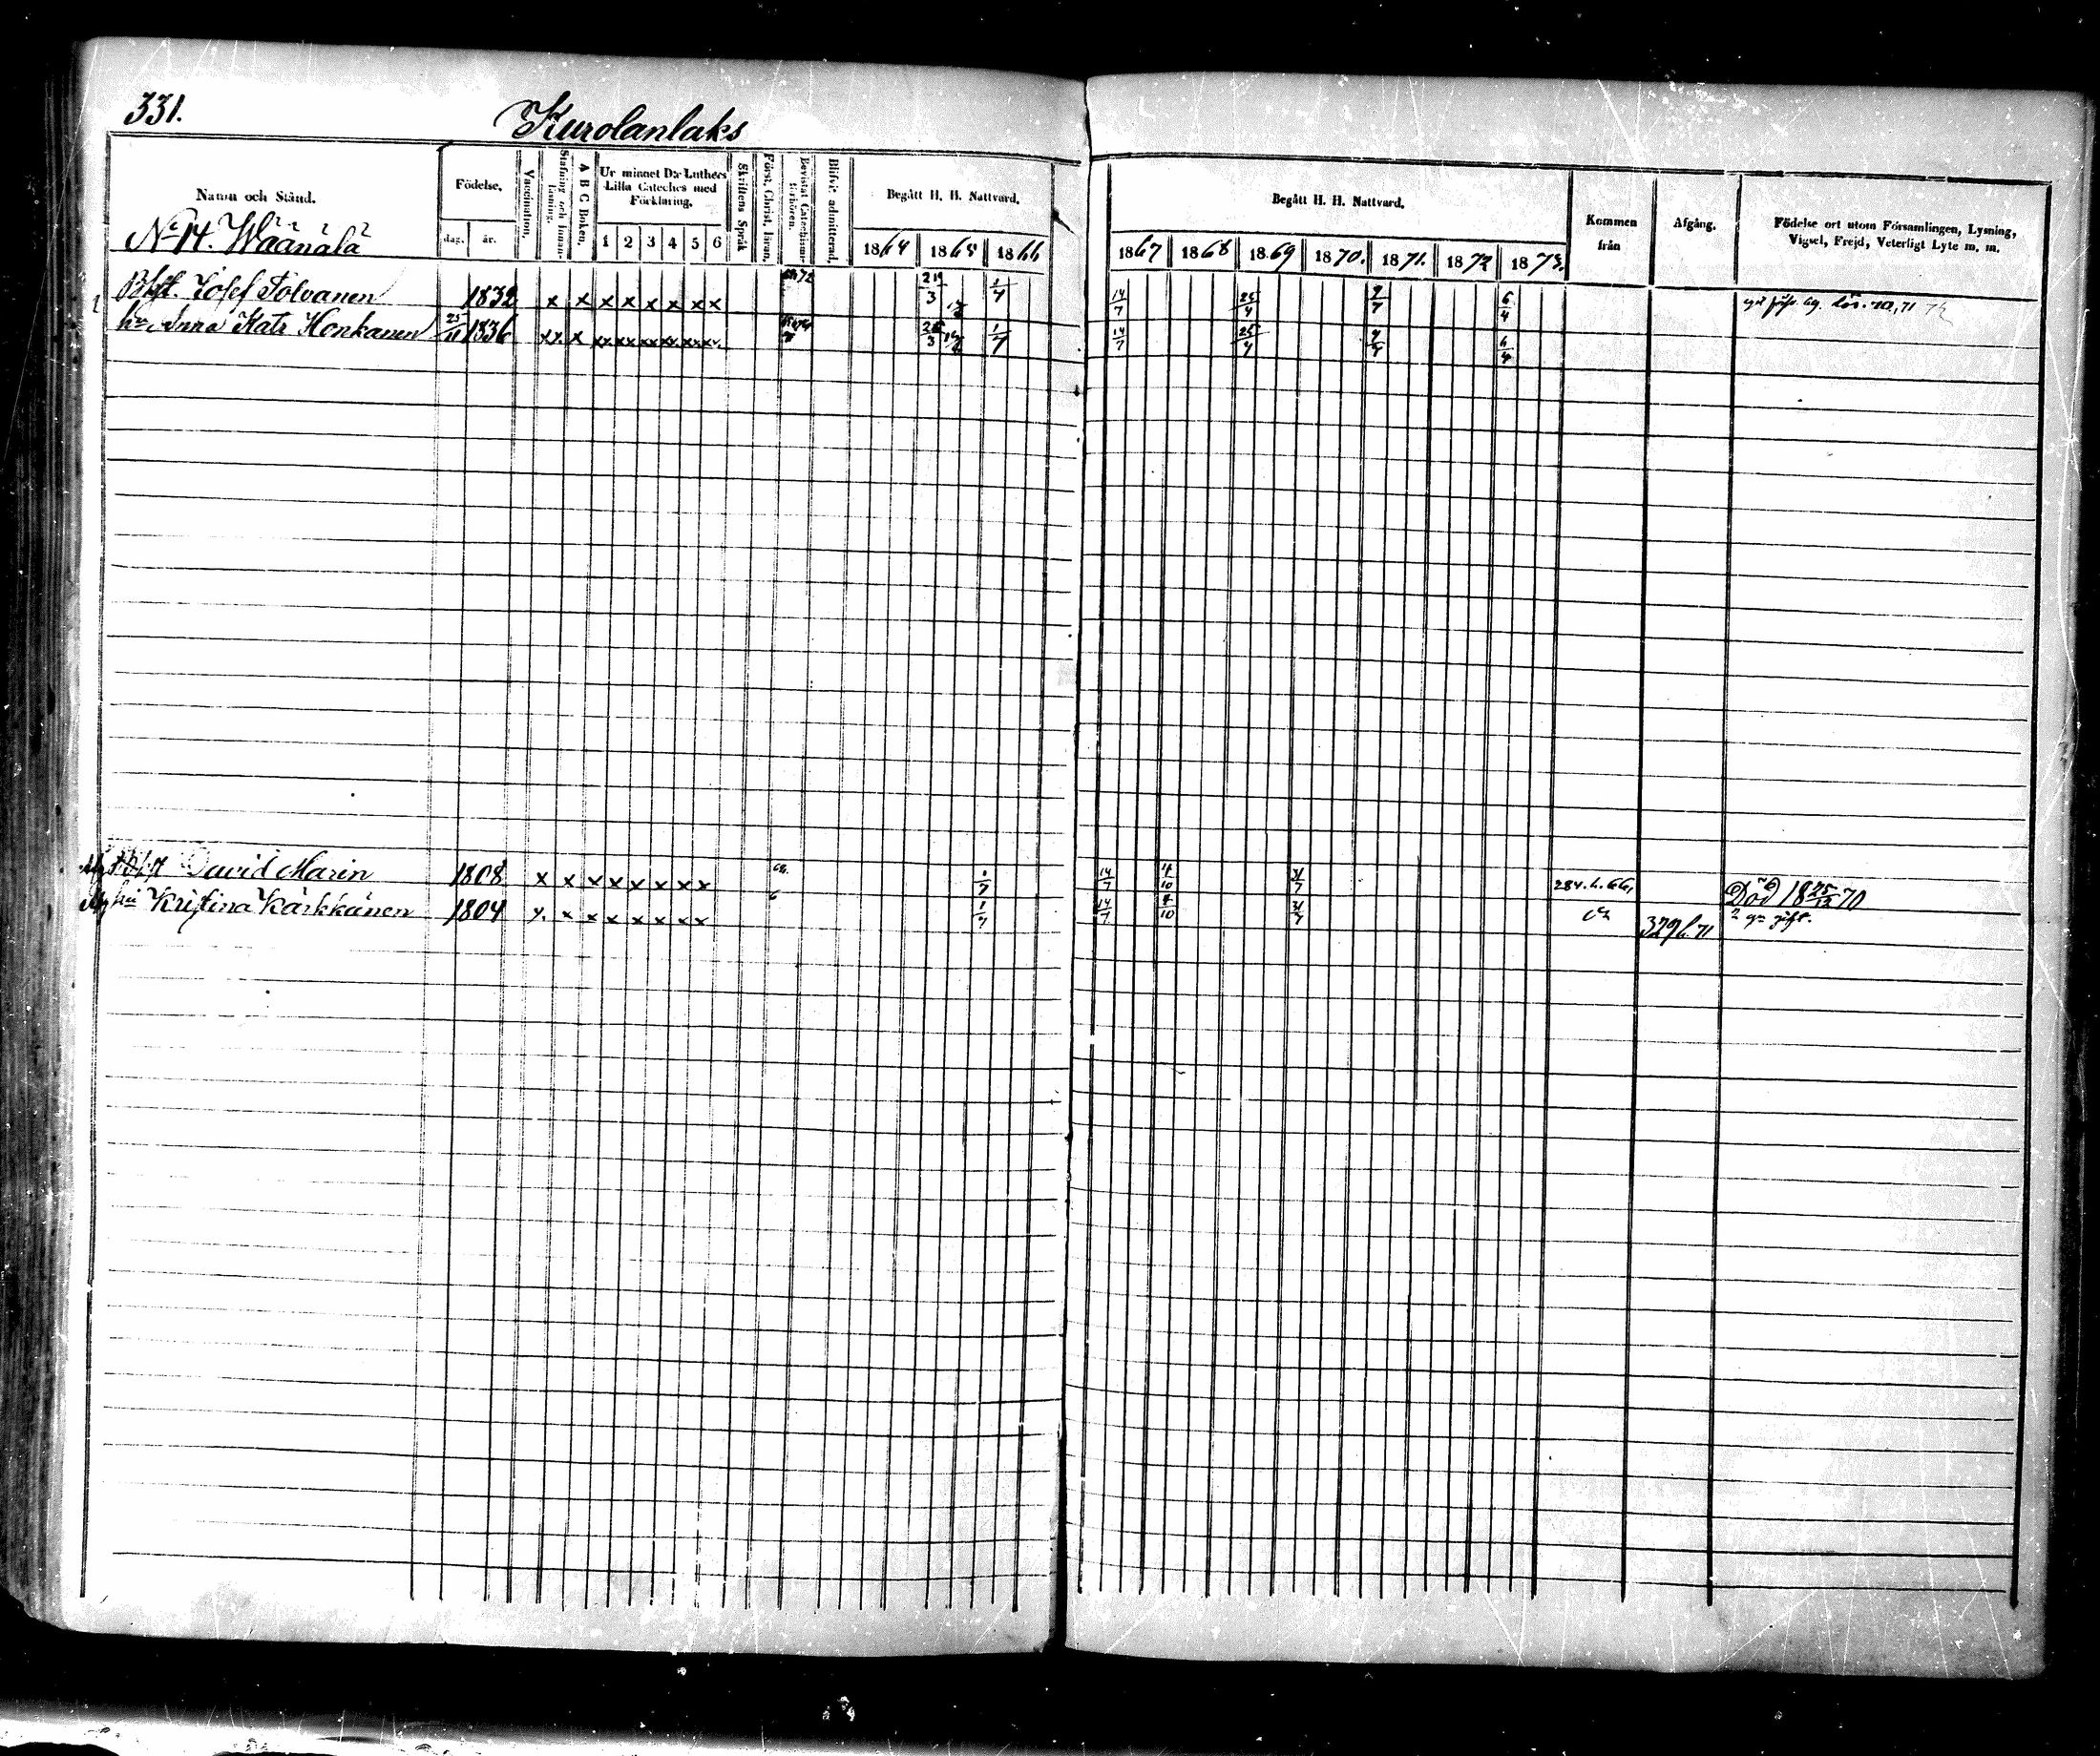 331.
Kurolanlaks
Namn och Stånd.
Födelse,
dag. år.
Vaccination,
Stafning och Innan-läsning,
A B C Boken,
Ur minnet D:r Luthers Lilla Cateches med Förklaring.
1 2 3 4 5 6
Skriftens Språk
Först. Christ. läran,
Bevistat Catechismi-förhören.
Blifvit admitterad,
Begått H. H. Nattvard.
1864 1865 1866
Begått H. H. Nattvard.
1867 1868 1869 1870. 1871. 1872 1873.
Kommen från
Afgång.
Födelse ort utom Församlingen, Lysning, Vigsel, Frejd, Veterligt Lyte m. m.
No 14. Wäänälä
Josef Tolvanen 1832 x x x x x x x x 1/4 14/7 25/4 9/7 6/4
hu Anna Kats Honkanen 25/11 1836 xx. x xx xx xx xx. xx xx. 1/4 14/7 25/4 6/4
David Marin 1808 x x x x x x x x 1/7 14/7 4/10 31/7 284. h. 66, Död 18 25/12 70
Kristina Kärkkänen 1804 x. x x x x x x x 1/7 14/7 4/10 31/7 329 h. 71 2 gr gift.